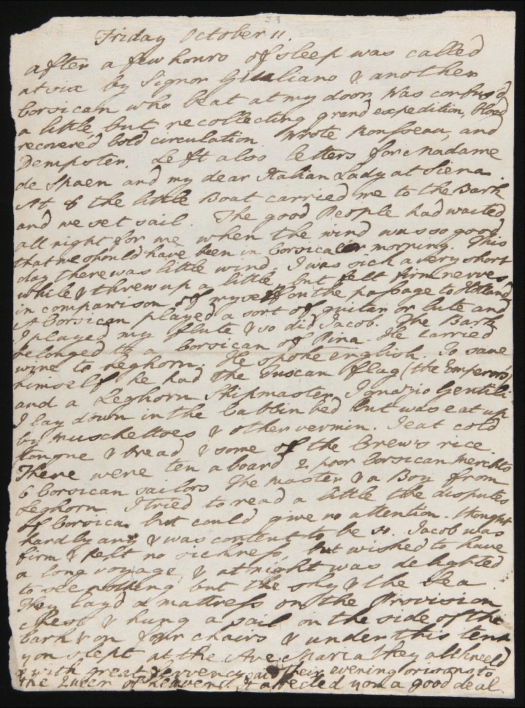 Friday October 11.
after a few hours of sleep was called
at six by Signor Giuliano & another
Corsican who beat at my door. Was confused
a little, but recollecting grand expedition, blood
recovered bold circulation. Wrote Rousseau, and
Dempster. Left also letters for Madame
de Spaen and my dear Italian Lady at Siena.
At 8 the little Boat carried me to the Bark
and we set sail. The good People had waited
all night for me when the wind was so good
that we should have been in Corsica morning. This
day there was little wind. I was sick a very short
while & threw up a little but felt firm nerves
in comparison of myself on the passage to Holland
A Corsican played a sort of guitar or lute and
I played my flute & so did Jacob. The Bark
belonged to a Corsican of Pina. He carried
wine to Leghorn. He spoke english. To save
himself he had the Tuscan flag (the Emperor's)
and a Leghorn Shipmaster, Ignazio Gentili.
I lay down in the Cabbin bed but was eat up
by muschettoes & other vermin. I eat cold
tongue & bread & some of the Crew's rice.
There were ten aboard 2 poor Corsican merchts
6 Corsican sailors The master & a Boy from
Leghorn. I tried to read a little the disputes
of Corsica but could give no attention. Thought
hardly any & was content to be so. Jacob was
firm & felt no sickness, but wished to have
a long voyage & at night was delighted
to see nothing but the sky & the sea
They layd a mattress on the Provision
chest & hung a sail on the side of the
bark & on four chairs & under this tent
you slept at the Ave Maria they all kneeld
& with great fervency said their evening orisons to
the Queen of heaven. It affected you a good deal.